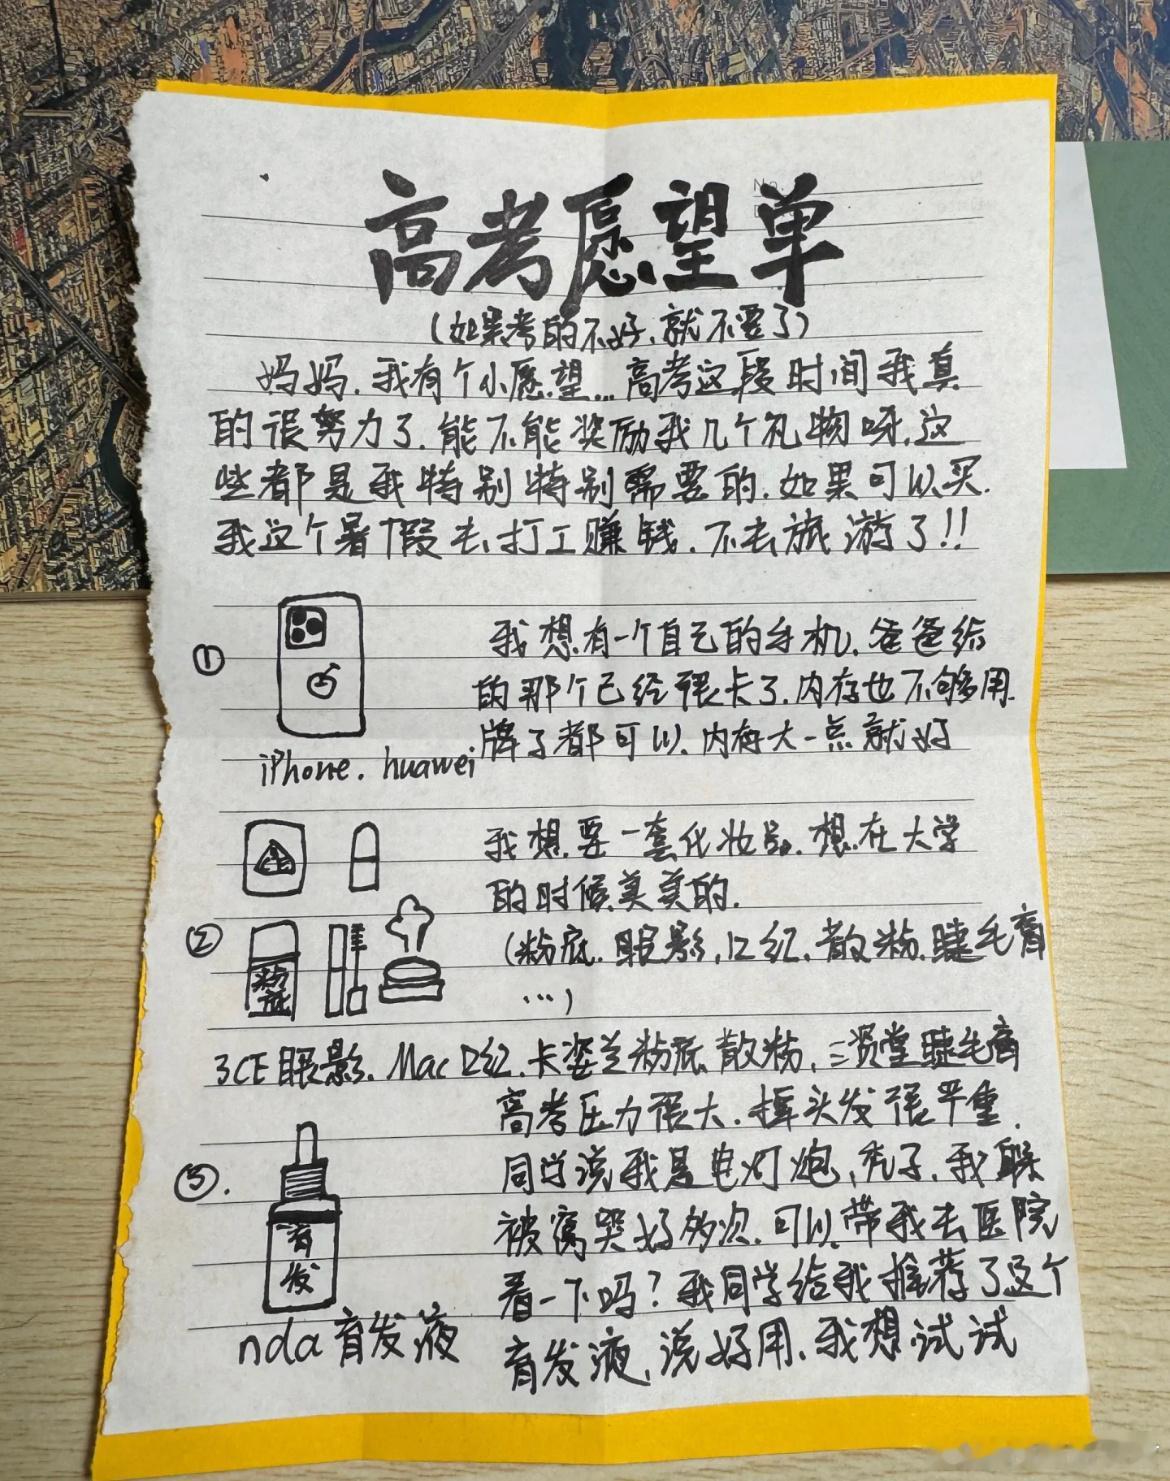 高考愿望单
(如果考的不好、就不要了)
妈妈.我有个小愿望...高考这段时间我真
的很努力了.能不能奖励我几个礼物呀.这
些都是我特别特别需要的.如果可以买.
我这个暑假去打工赚钱.不去旅游了!!
① 我想有一个自己的手机.爸爸给
的那个已经很卡了.内存也不够用.
牌子都可以.内存大一点就好
iPhone. huawei
② 我想要一套化妆品.想在大学
的时候美美的.
(粉底.眼影,口红.散粉.睫毛膏
...)
粉底
3CE眼影.Mac口红.卡姿兰粉底散粉,三资堂睫毛膏
高考压力很大.掉头发很严重.
③. 同学说我是电灯炮,秃子,我躲
被窝哭好多次.可以带我去医院
看一下吗?我同学给我推荐了这个
育发液,说好用.我想试试
育发
nda育发液